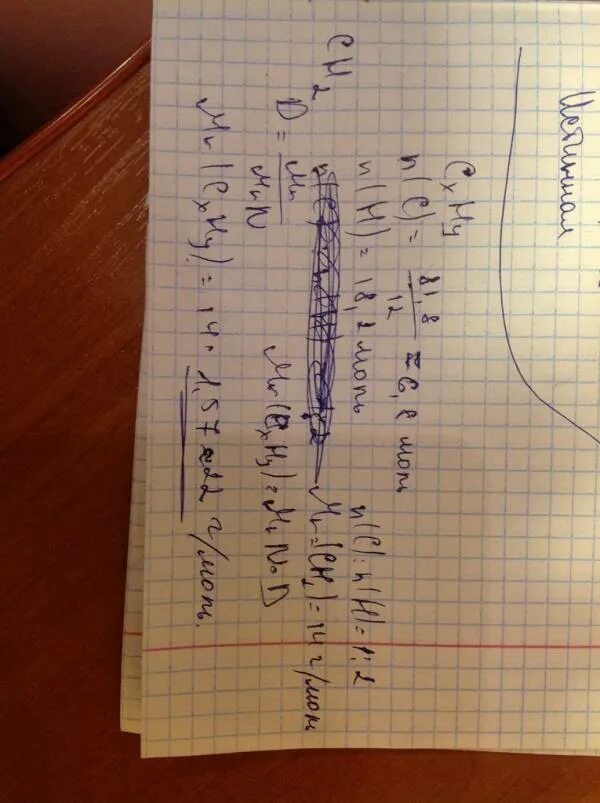 Истинная
CxHy
n(C) = 81,8 / 12 ≈ 6,8 моль
n(H) = 18,2 моль n(C):n(H) = 1:2
Mr(CH2) = 14 г/моль
CH2
D = Mr / MrN Mr(CxHy) = MrN · D
Mr(CxHy) = 14 · 1,57 = 22 г/моль.